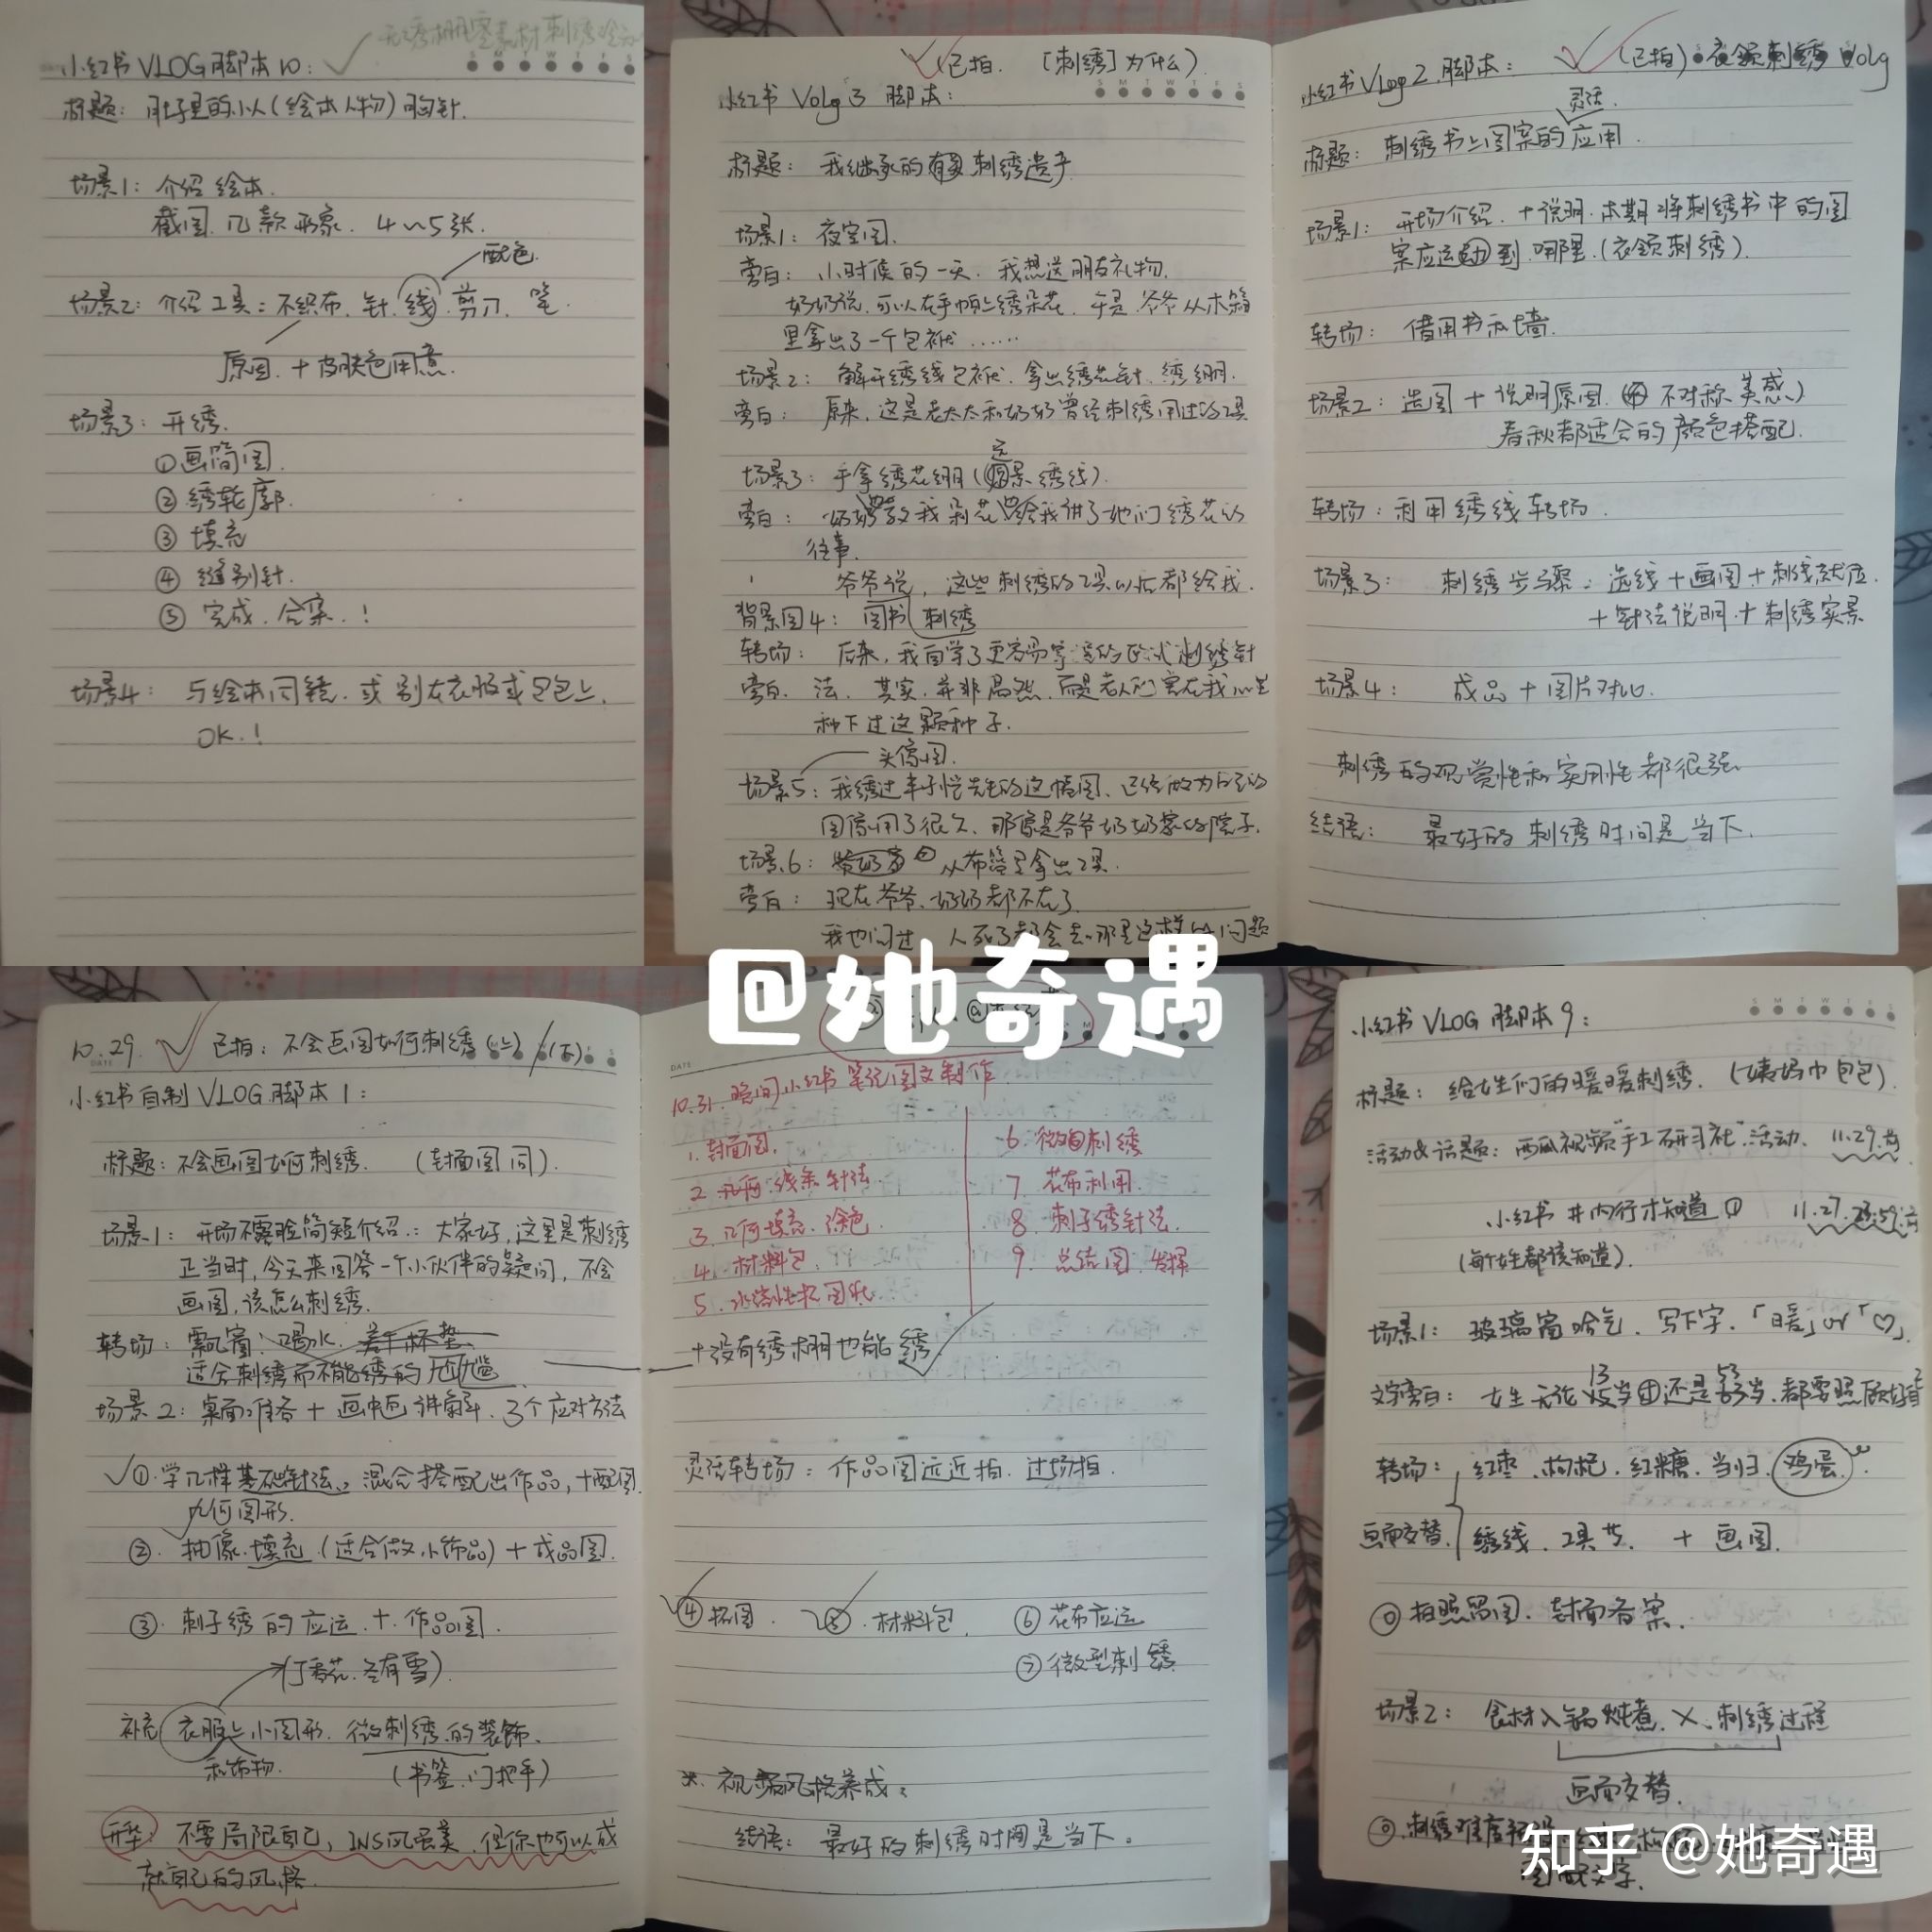 小红书 VLOG 脚本 10:
标题: 肚子里的小人(绘本人物)胸针.
场景1: 介绍绘本.
截图. 几款形象. 4~5张.
配色.
场景2: 介绍工具: 不织布. 针. 线. 剪刀. 笔.
原因. + 皮肤色用意.
场景3: 开绣.
①画简图.
②绣轮廓.
③填充
④缝别针.
⑤完成. 合案. !
场景4: 与绘本同镜. 或别在衣服或包包上.
OK. !
(已拍. [刺绣]为什么)
小红书 Volg 3 脚本:
标题: 我继承的有关刺绣遗产
场景1: 夜空图.
旁白: 小时候的一天. 我想送朋友礼物.
奶奶说. 可以在手帕上绣朵花. 于是. 爷爷从木箱
里拿出了一个包袱……
场景2: 解开绣线包袱. 拿出绣花针. 绣绷.
旁白: 原来. 这是老太太和奶奶曾经刺绣用过的工具
远
场景3: 手拿绣花绷(景绣线).
旁白: 奶奶教我刺花 给我讲了她们绣花的
往事.
爷爷说, 这些刺绣的工具以后都给我.
背景图4: 图书 刺绣
转场: 后来, 我自学了更容易学的欧式刺绣针
旁白. 法. 其实. 并非偶然. 而是老人们早在我心里
种下过这颗种子.
头像图.
场景5: 我绣过丰子恺先生的这幅图. 已经做为自己的
图像用了很久. 那像是爷爷奶奶家的院子.
场景6: 从布箱里拿出工具.
旁白: 现在爷爷、奶奶都不在了.
我也问过. 人死了都会去哪里这样的问题
(已拍) 衣领刺绣 Volg
小红书 Vlog 2. 脚本:
灵活.
标题: 刺绣书上图案的应用.
场景1: 开场介绍. + 说明. 本期将刺绣书中的图
案应运到哪里.(衣领刺绣).
转场: 借用书和墙.
场景2: 选图 + 说明原因. (不对称美感)
春秋都适合的颜色搭配.
转场: 利用绣线转场.
场景3: 刺绣步骤: 选线 + 画图 + 刺绣就位.
+ 针法说明 + 刺绣实景
场景4: 成品 + 图片对比.
刺绣的观赏性和实用性都很强
结语: 最好的刺绣时间是当下.
@她奇遇
10.29. 已拍: 不会画图如何刺绣(上)/(下)
小红书自制 VLOG 脚本 1:
标题: 不会画图如何刺绣. (封面图同).
场景1: 开场不露脸简短介绍: 大家好, 这里是刺绣
正当时, 今天来回答一个小伙伴的疑问, 不会
画图, 该怎么刺绣.
转场: 飘窗. 喝水. 杯垫
适合刺绣而不能绣的尴尬
场景2: 桌面准备 + 画中画讲解. 3个应对方法
①学几样基础针法, 混合搭配出作品, + 配图
几何图形.
②. 抽像. 填充.(适合做小饰品) + 成品图.
③. 刺子绣的应运. + 作品图.
(丁香花. 冬有雪).
补充 衣服上小图形. 微刺绣的装饰.
和饰物. (书签. 门把手)
升华: 不要局限自己, INS风虽美, 但你也可以成
就自己的风格.
DATE
10.31. 晚间小红书笔记图文制作
1. 封面图.
2. 几何. 线条针法.
3. 几何填充. 涂色.
4. 材料包.
5. 水溶性拓图纸.
6. 微自刺绣
7. 花布利用.
8. 刺子绣针法.
9. 总结图. 发挥
+ 没有绣棚也能绣.
灵活转场: 作品图远近拍. 过场拍.
④ 拓图. ⑤ 材料包. ⑥ 花布应运
⑦ 微型刺绣
※. 视频风格养成:
结语: 最好的刺绣时间是当下。
小红书 VLOG 脚本 9:
标题: 给女生们的暖暖刺绣. (姨妈巾包包).
活动&话题: 西瓜视频"手工研习社"活动. 11.29.
小红书 #内行才知道 11.27. 23:59.
(每个女生都该知道).
场景1: 玻璃窗哈气. 写下字. 「暖」or「♡」
文字旁白: 女生无论13岁还是53岁, 都要照顾好自己
转场: 红枣. 枸杞. 红糖. 当归. 鸡蛋
画面交替. 绣线. 工具书. + 画图.
拍照留图. 封面备案.
场景2: 食材入锅炖煮. × 刺绣过程
画面交替.
图配文字.
知乎 @她奇遇